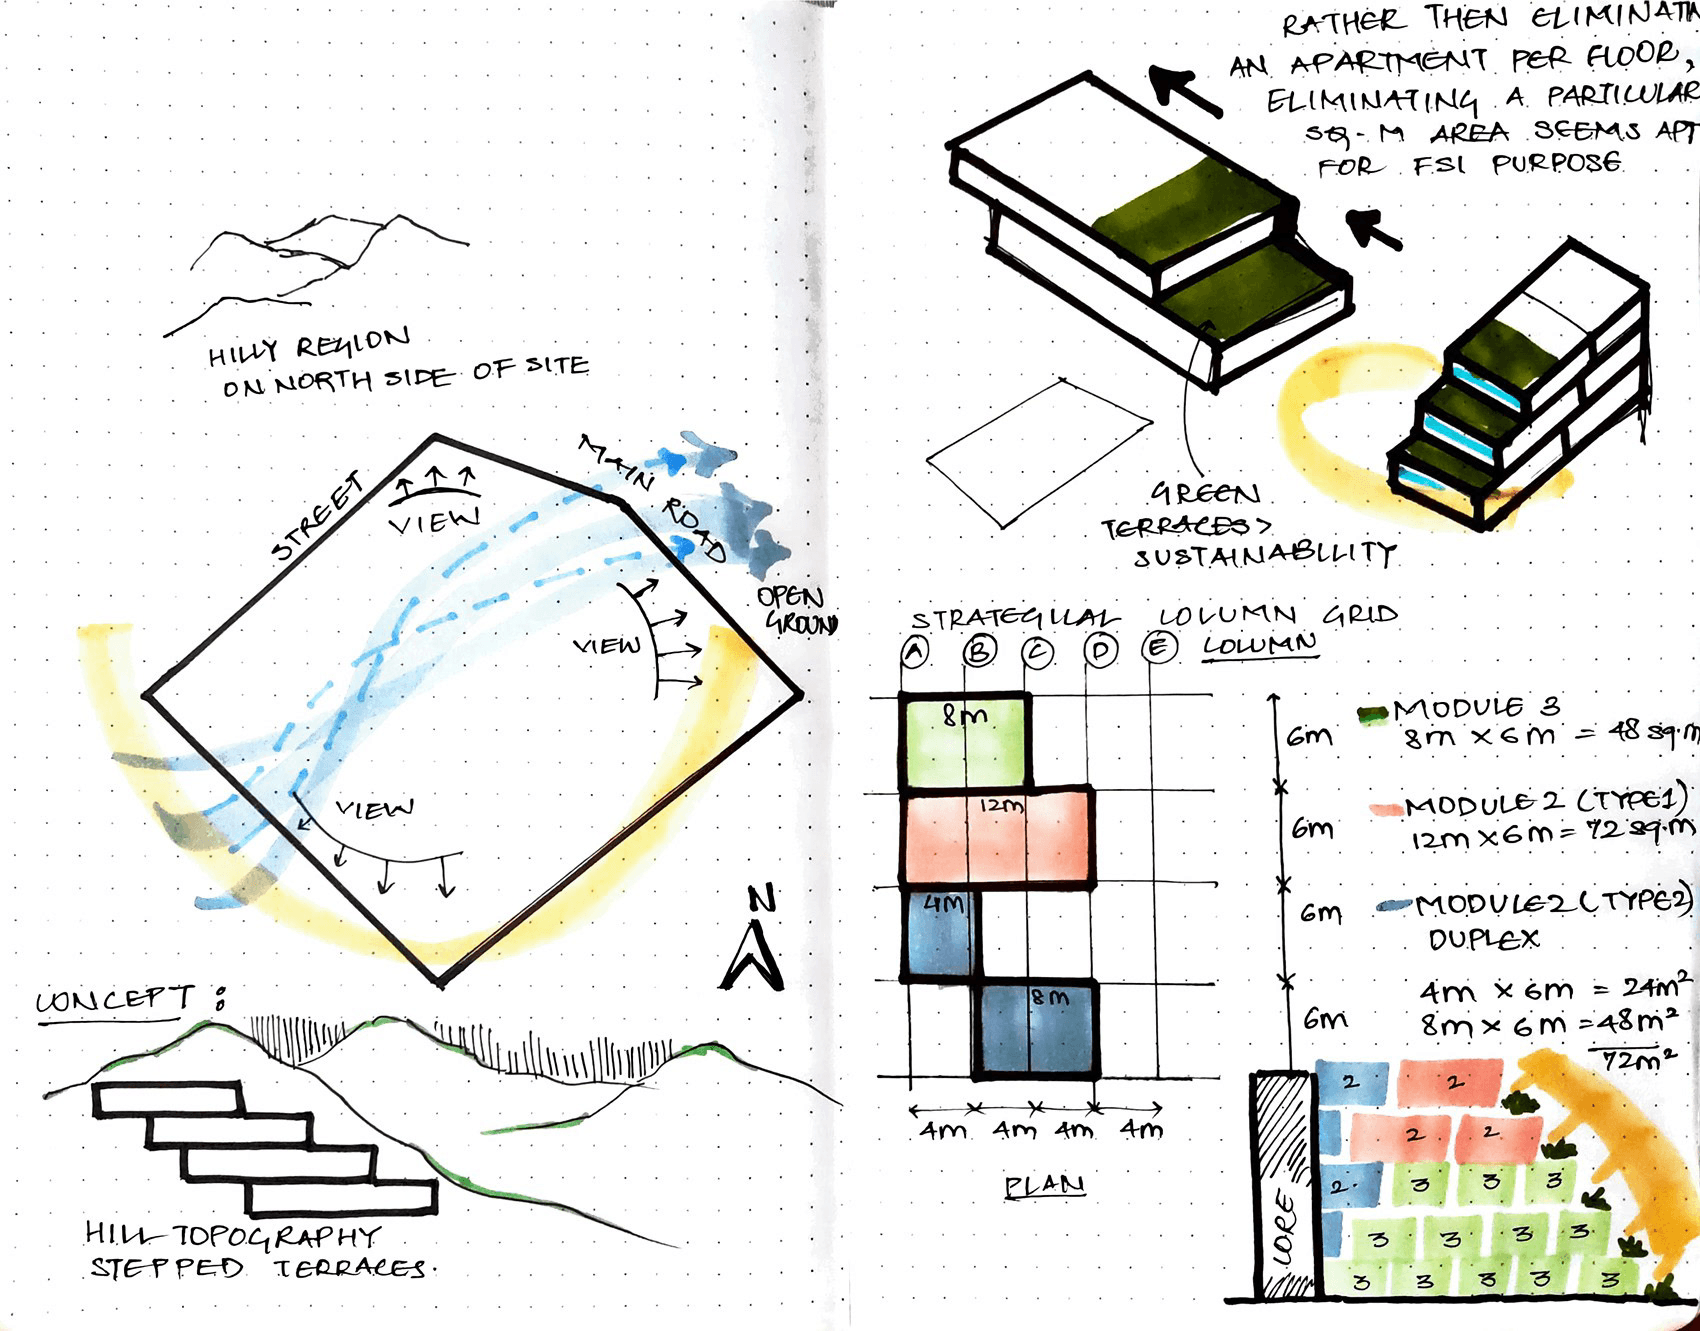 HILLY REGION
ON NORTH SIDE OF SITE
STREET
VIEW
MAIN
ROAD
OPEN
GROUND
VIEW
VIEW
N
CONCEPT :
HILL TOPOGRAPHY
STEPPED TERRACES.
RATHER THEN ELIMINATIN
AN APARTMENT PER FLOOR,
ELIMINATING A PARTICULAR
SQ-M AREA SEEMS APT
FOR FSI PURPOSE
GREEN
TERRACES>
SUSTAINABILITY
STRATEGICAL COLUMN GRID
A B C D E COLUMN
8m
12m
4m
8m
4m 4m 4m 4m
PLAN
6m
6m
6m
6m
MODULE 3
8m X 6m = 48 sq.m
MODULE 2 (TYPE1)
12m X 6m = 72 sq.m
MODULE 2 (TYPE2)
DUPLEX
4m X 6m = 24m²
8m X 6m = 48m²
72m²
CORE
2 2
2 2
2 3 3 3
3 3 3 3
3 3 3 3 3